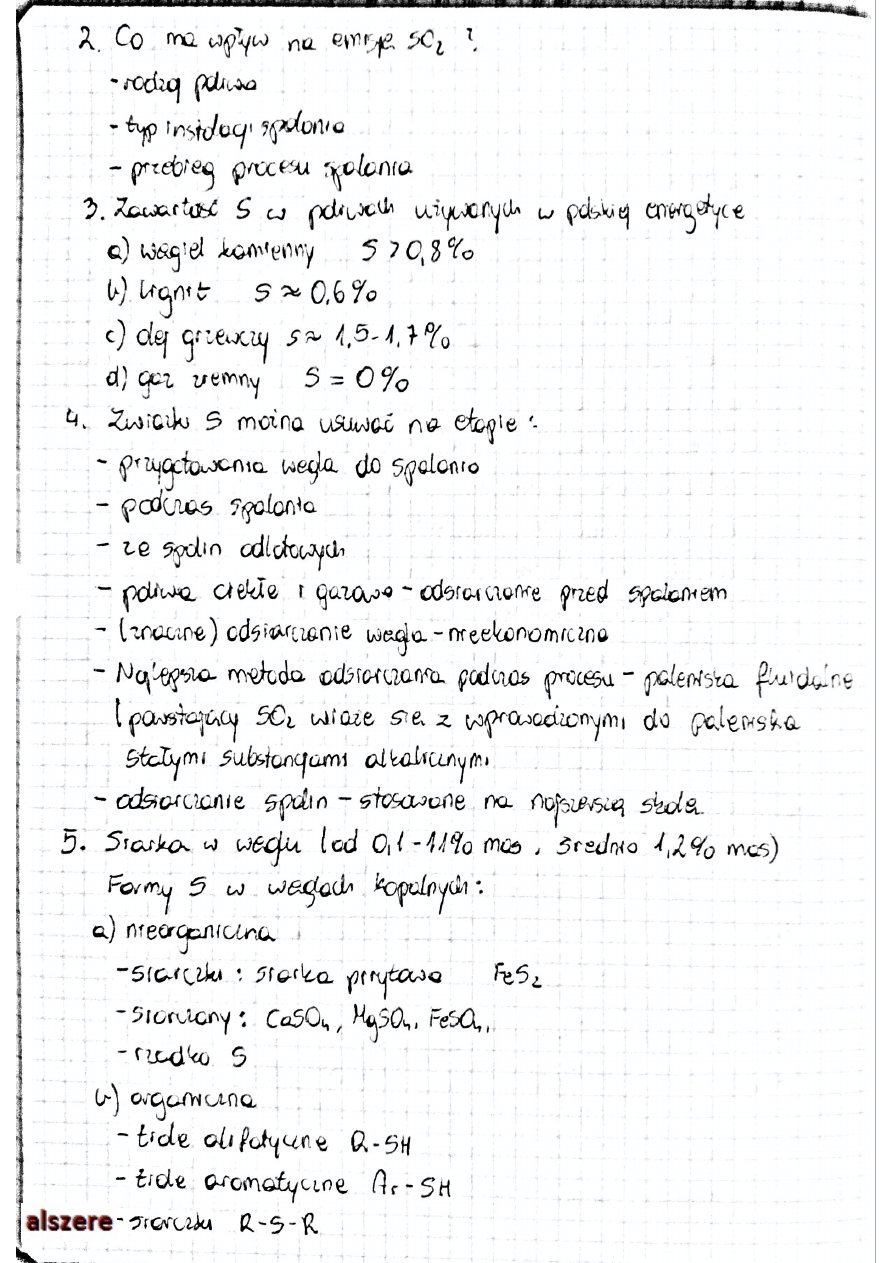 2. Co ma wpływ na emisję SO₂ ?
- rodzaj paliwa
- typ instalacji spalania
- przebieg procesu spalania
3. Zawartość S w paliwach używanych w polskiej energetyce
a) węgiel kamienny S > 0,8%
b) lignit S ≈ 0,6%
c) olej grzewczy S ≈ 1,5-1,7%
d) gaz ziemny S = 0%
4. Związki S można usuwać na etapie :
- przygotowania węgla do spalania
- podczas spalania
- ze spalin odlotowych
- paliwa ciekłe i gazowe - odsiarczanie przed spalaniem
- (znaczne) odsiarczanie węgla - nieekonomiczne
- Najlepsza metoda odsiarczania podczas procesu - paleniska fluidalne
(powstający SO₂ wiąże się z wprowadzonymi do paleniska
stałymi substancjami alkalicznymi
- odsiarczanie spalin - stosowane na najszerszą skalę
5. Siarka w węglu (od 0,1 - 11% mas, średnio 1,2% mas)
Formy S w węglach kopalnych :
a) nieorganiczna
- siarczki : siarka pirytowa FeS₂
- siarczany : CaSO₄, MgSO₄, FeSO₄,
- rzadko S
b) organiczna
- tiole alifatyczne R-SH
- tiole aromatyczne Ar-SH
- siarczki R-S-R
alszere